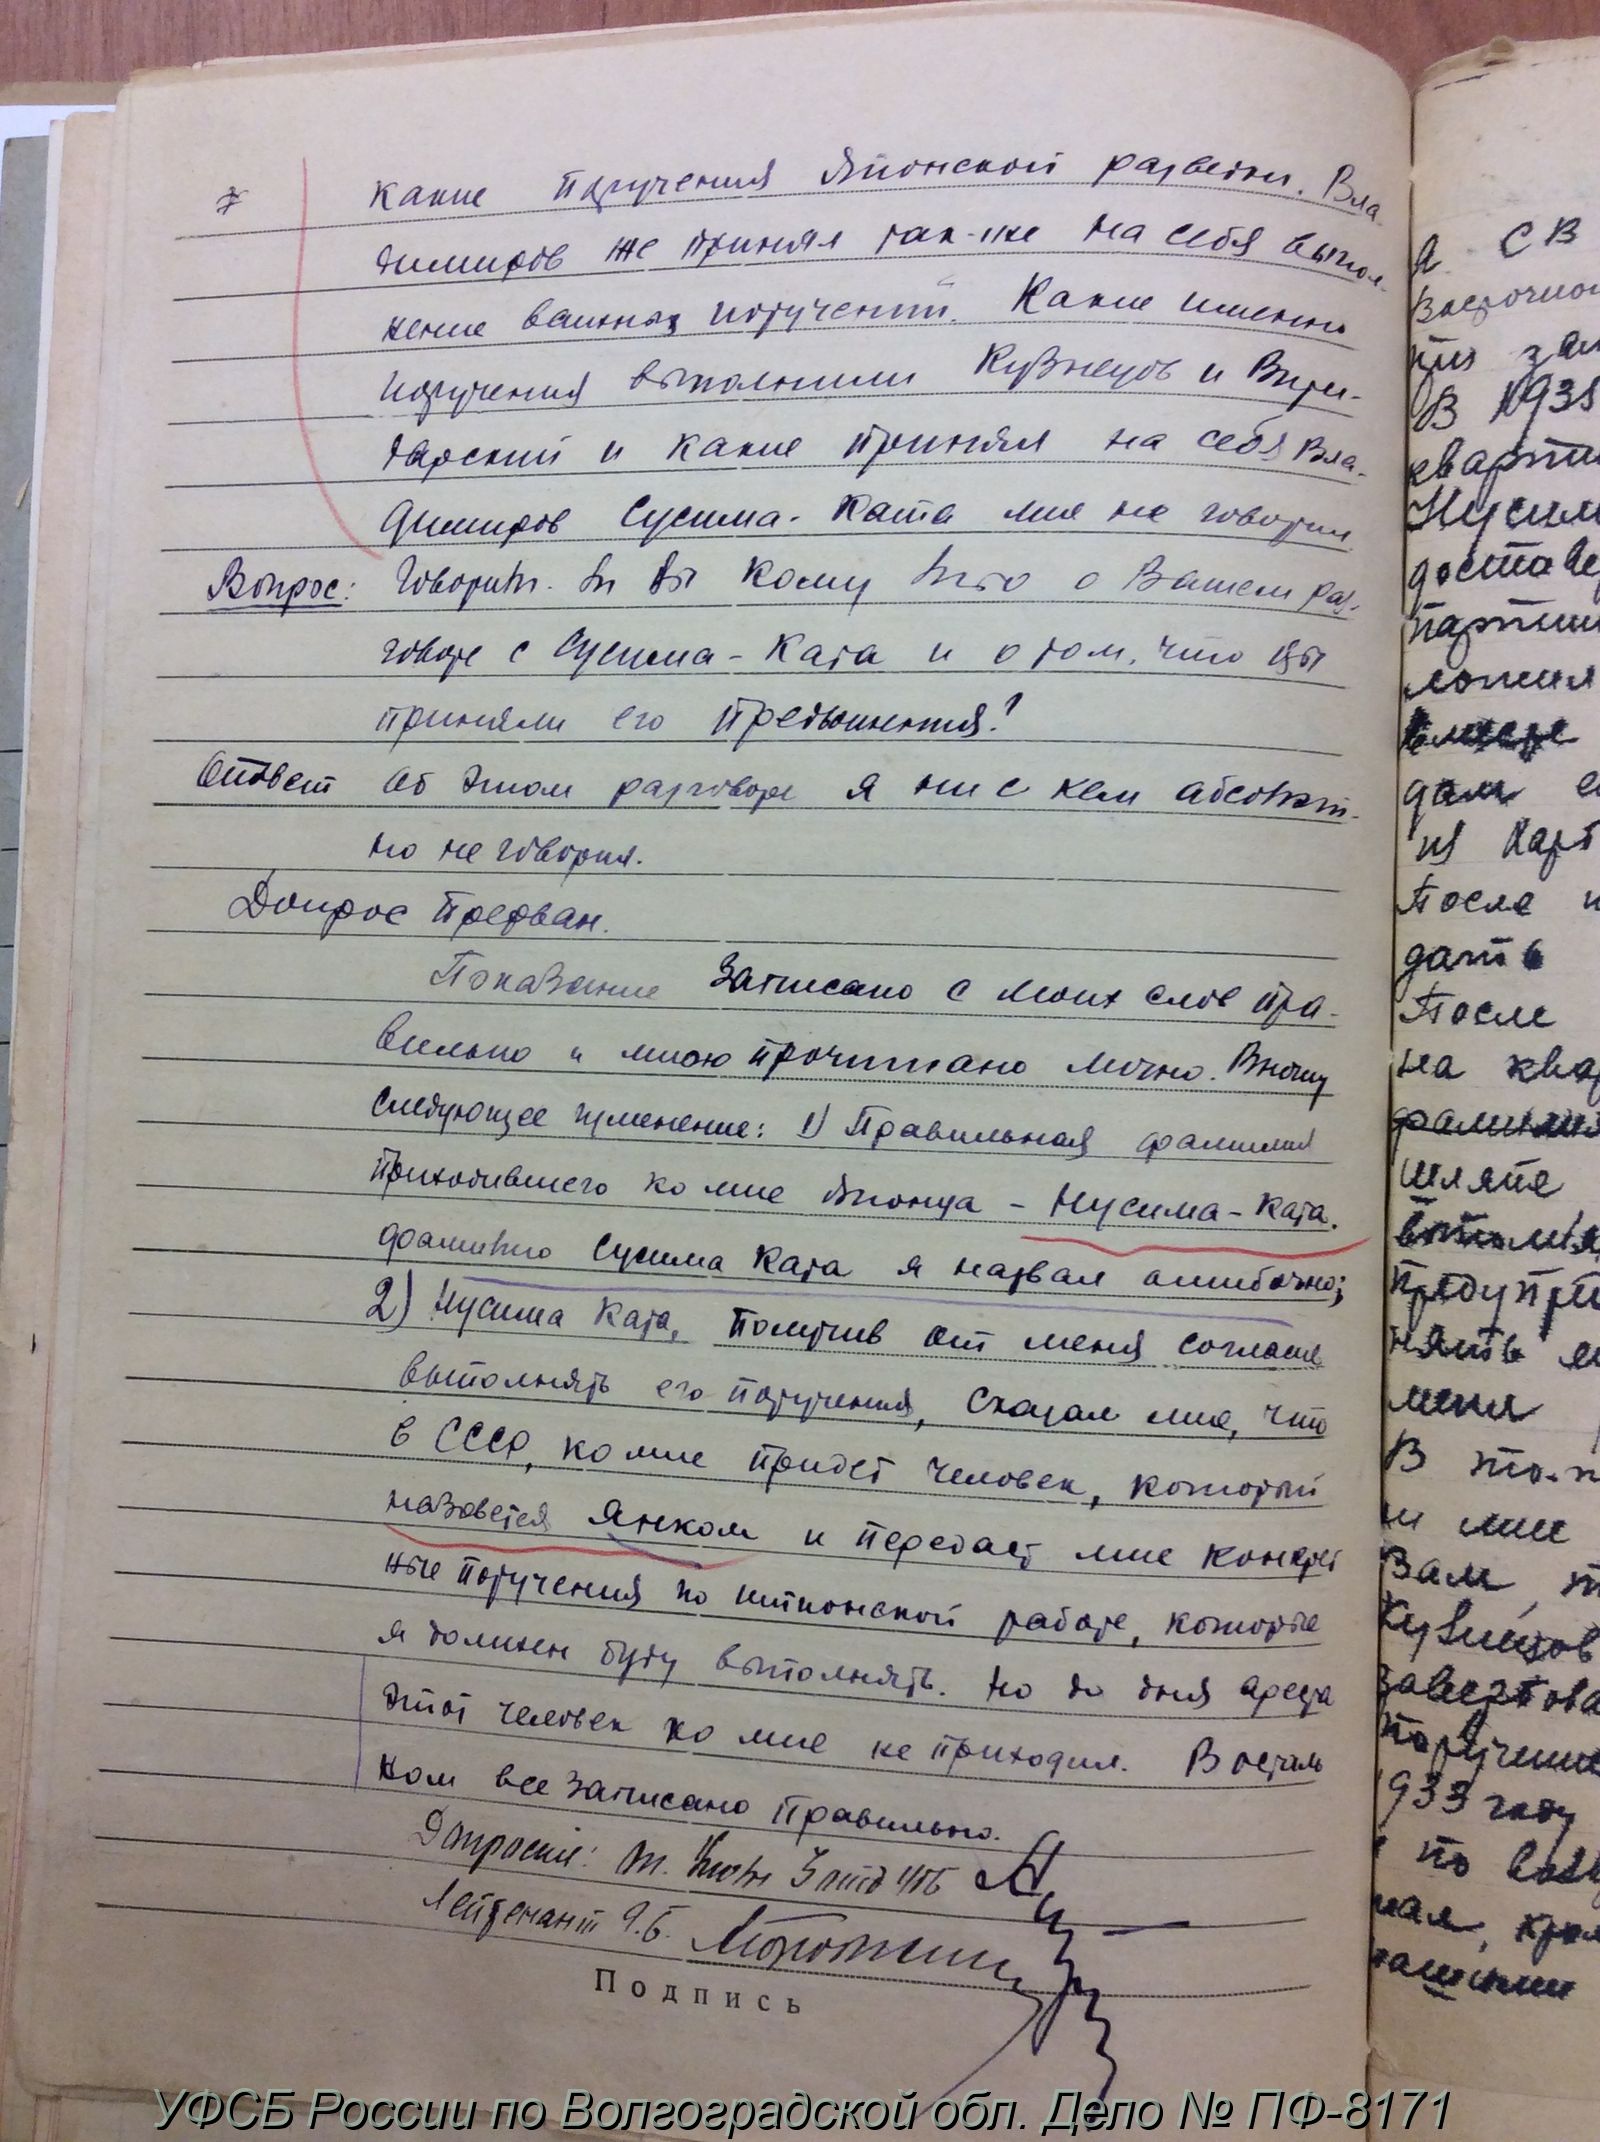 какие поручения Японской разведки. Вла
димиров же принял так-же на себя выпол-
нение важных поручений. Какие именно
поручения выполнили Кузнецов и
и какие принял на себя Вла-
димиров Сусима-Ката мне не говорил
Вопрос: Говорили ли Вы кому либо о Вашем раз-
говоре с Сусима-Ката и о том, что Вы
приняли его предложения?
Ответ Об этом разговоре я ни с кем абсолют-
но не говорил.
Допрос прерван.
Показание записано с моих слов пра-
вильно и мною прочитано лично. Вношу
следующее изменение: 1) Правильная фамилия
приходившего ко мне японца - Нусима-Ката.
фамилию Сусима Ката я назвал ошибочно;
2) Нусима Ката, получив от меня согласие
выполнять его поручения, сказал мне, что
в СССР, ко мне придет человек, который
назовется Янком и передаст мне конкрет
ные поручения по шпионской работе, которые
я должен буду выполнять. Но до дня ареста
этот человек ко мне не приходил. В осталь
ном все записано правильно.
Допросил:
Лейтенант Г.Б.
Подпись
УФСБ России по Волгоградской обл. Дело № ПФ-8171
Я СВ
пия
В 1935
Нусим
После
дать
После
на квар
шляпе
нять
меня
В
и мне
Вам,
Кузнецов
933 году
по